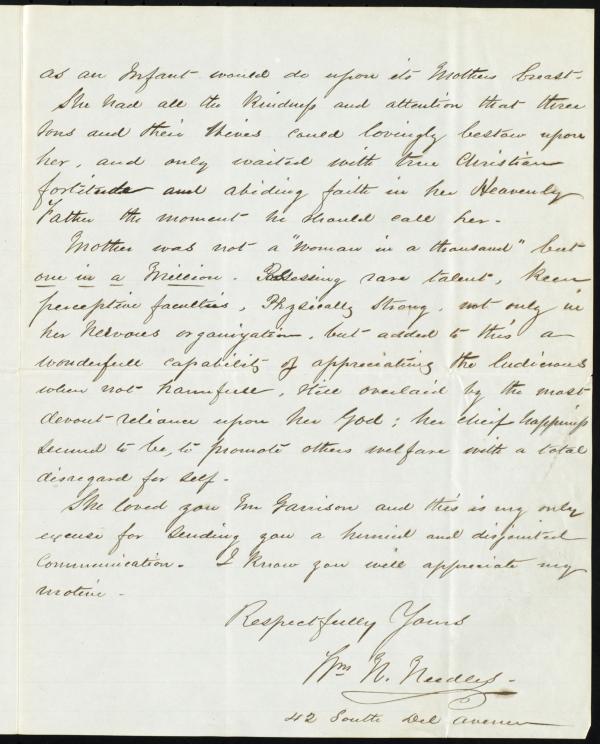 as an Infant would do upon its Mothers breast.
She had all the kindness and attention that three
Sons and their Wives could lovingly bestow upon
her, and only waited with true Christian
fortitude and abiding faith in her Heavenly
Father the moment he should call her.
Mother was not a "Woman in a thousand" but
one in a Million. Possessing rare talent, keen
perceptive faculties, Physically strong, not only in
her Nervous organization, but added to this a
wonderfull capability of appreciating the ludicrous
when not harmfull, still overlaid by the most
devout reliance upon her God; her cheif happiness
seemed to be, to promote others welfare with a total
disregard for self.
She loved you Mr Garrison and this is my only
excuse for sending you a hurried and disjointed
Communication. I know you will appreciate my
motive.
Respectfully Yours
Wm N. Needles.
42 South Del Avenue